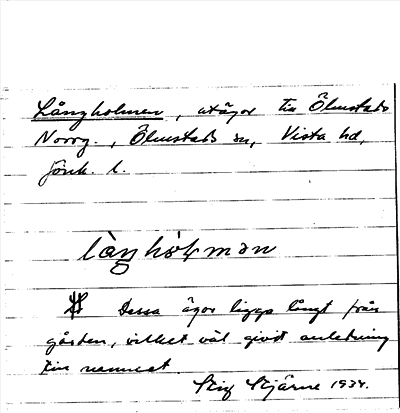 Långholmen, utägor till Ölmstads
Norrg., Ölmstads sn, Vista hd,
Jönk. l.
låŋhòɫmən
Dessa ägor ligga långt från
gården, vilket väl givit anledning
till namnet
Stig Stjärne 1934.